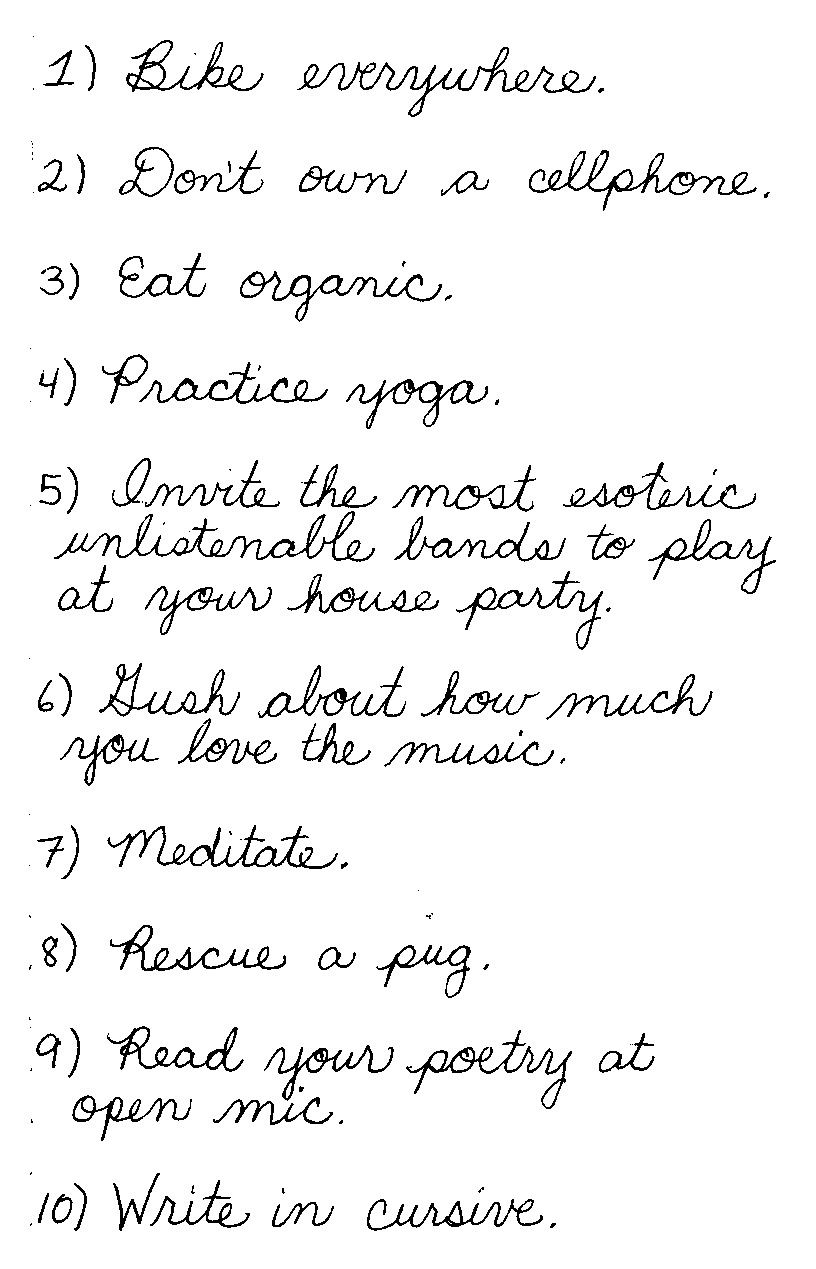 1) Bike everywhere.
2) Don't own a cellphone.
3) Eat organic.
4) Practice yoga.
5) Invite the most esoteric
unlistenable bands to play
at your house party.
6) Gush about how much
you love the music.
7) Meditate.
8) Rescue a pug.
9) Read your poetry at
open mic.
10) Write in cursive.